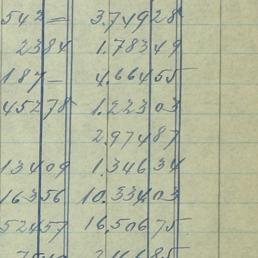 542 — 3.74928
2384 1.78349
187 — 4.66455
45278 1.22303
2.97487
13409 1.34634
16356 10.33403
52457 16.50675